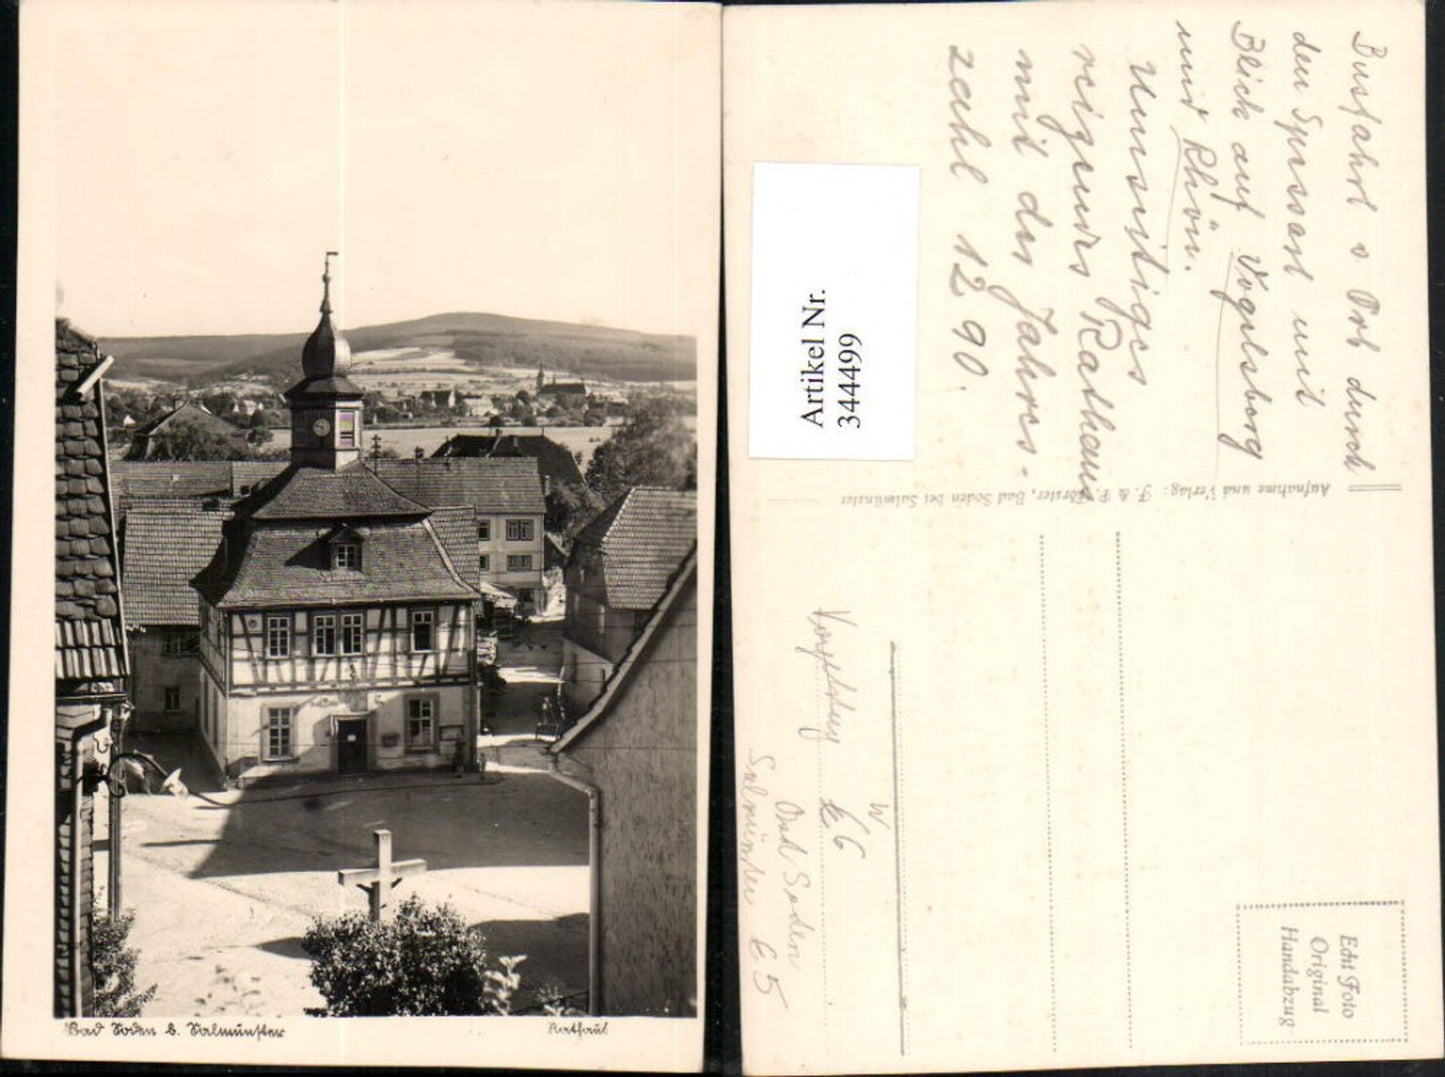 Bad Soden b. Salmünster
Rathaus
Busfahrt v Orb durch
den Spessart mit
Blick auf Vogelsberg
und Rhön.
Umseitiges
reizendes Rathaus
mit der Jahres-
zahl 1290.
Artikel Nr.
344499
Aufnahme und Verlag: F. & P. Förster, Bad Soden bei Salmünster
Vogelsberg
66
W
Bad Soden
Salmünster 65
Echt Foto
Original
Handabzug